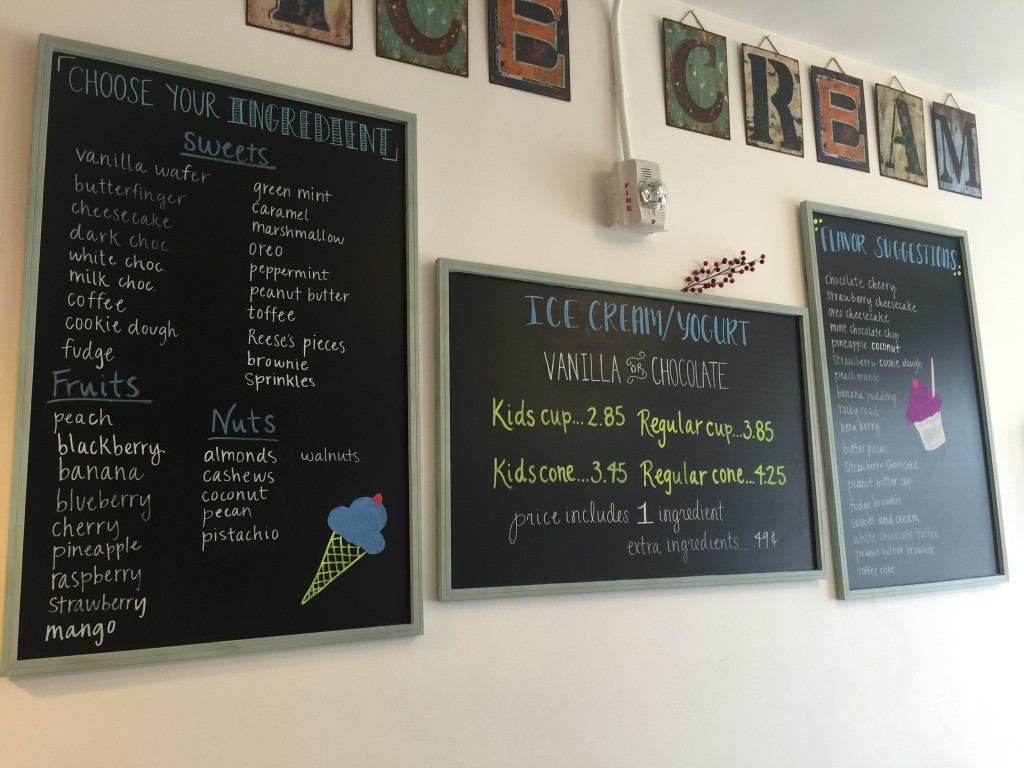 ICE CREAM
FIRE
CHOOSE YOUR INGREDIENT
Sweets
vanilla wafer
butterfinger
cheesecake
dark choc.
white choc.
milk choc.
coffee
cookie dough
fudge
green mint
caramel
marshmallow
oreo
peppermint
peanut butter
toffee
Reese's pieces
brownie
sprinkles
Fruits
peach
blackberry
banana
blueberry
cherry
pineapple
raspberry
strawberry
mango
Nuts
almonds
cashews
coconut
pecan
pistachio
walnuts
ICE CREAM/YOGURT
VANILLA OR CHOCOLATE
Kids cup...2.85 Regular cup...3.85
Kids cone...3.45 Regular cone...4.25
price includes 1 ingredient
extra ingredients... 49¢
FLAVOR SUGGESTIONS
chocolate cherry
strawberry cheesecake
oreo cheesecake
mint chocolate chip
pineapple coconut
strawberry cookie dough
peach mango
banana pudding
rocky road
very berry
butter pecan
strawberry shortcake
peanut butter cup
fudge brownie
cookies and cream
white chocolate toffee
peanut butter brownie
coffee cake